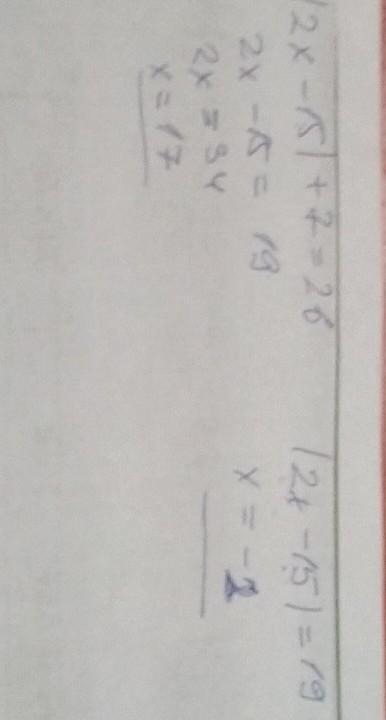 |2x - 15| + 7 = 26
2x - 15 = 19
2x = 34
x = 17
|2x - 15| = 19
x = -2